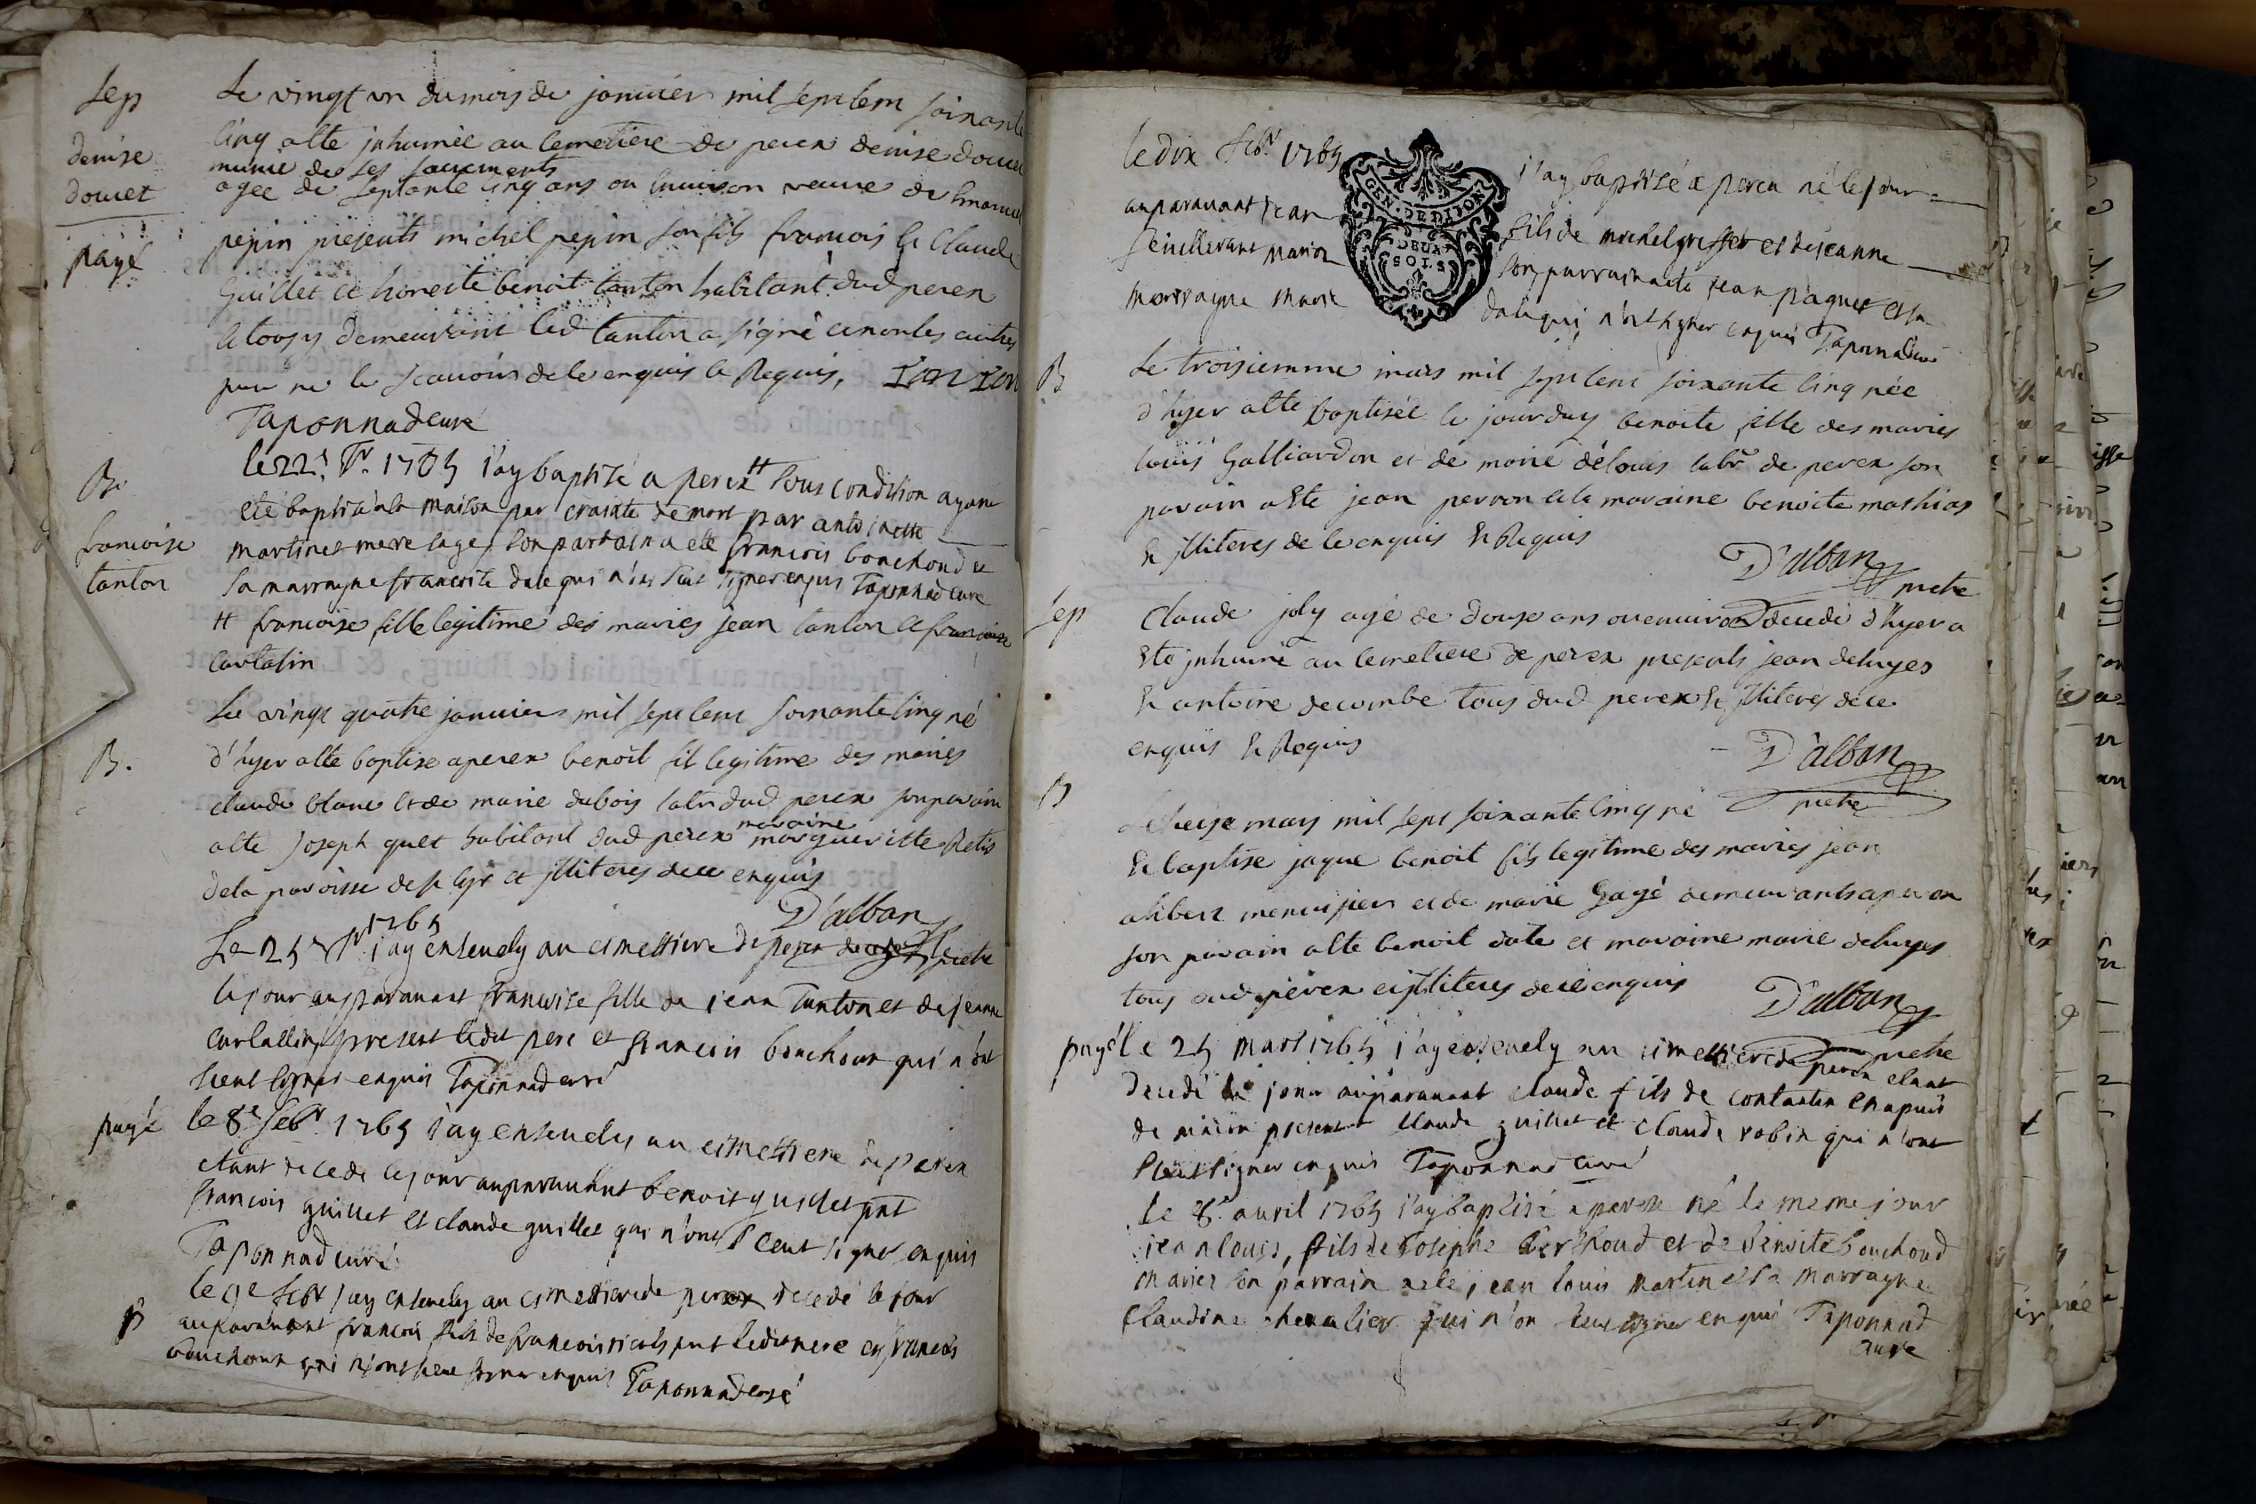 Sep
denise
douet
payé
Le vingt un du mois de janvier mil sept cent soixante
cinq a été inhumée au cemetiere de perex denise douet
munie de ses sacrements
agee de septante cinq ans ou environ veuve de
pepin presents michel pepin son fils francois & Claude
Guillet et honeste benoit tanton habitant dud perex
demeurant led tanton a signé et non les autres
pour ne le scavoir de ce enquis & Requis, TANTON
Taponnad curé
B.
francoise
tanton
le 22e 1765 j'ay baptisé a perex # sous condition ayant
été baptisé a la maison par crainte de mort par antoinette
martinet mere sage, son parrain a été francois bouchoud et
sa marrayne francoise qui n'ont sceut signer enquis Taponnad curé
# francoise fille legitime des mariés jean tanton et francoise
Curlalin
B.
Le vingt quatre janvier mil sept cent soixante cinq né
d'hyer a été baptise a perex benoit fil legitime des mariés
claude blanc et de marie dubois labr dud perex son parain
a été Joseph quet habitant dud perex maraine margueritte
de la paroisse de st Cyr et illiteres de ce enquis
D'alban pretre
Le 25e jr 1765 j'ay ensevely au cimettiere de perex
le jour auparavant francoise fille de jean Tanton et de jeanne
Curlallin, present ledit pere et francois bouchour qui n'ont
sceut signer enquis Taponnad curé
payé
le 8e febr 1765 j'ay ensevely au cimettiere de perex
etant decede le jour auparavant benoit guillet pnt
francois guillet et claude guillet qui n'ont sceut signer enquis
Taponnad curé
B
le 9e febr j'ay ensevely au cimettiere de perex decedé le jour
auparavant francois fils de francois pnt ledit pere et francois
bouchour qui n'ont sceut signer enquis Taponnad curé
le dix febr 1765 j'ay baptisé a perex né le jour
auparavant jean fils de michel et de jeanne
marion son parrain a été jean paquet et sa
marrayne marie qui n'ont signer enquis Taponnad curé
GEN. DE DIJON
DEUX
SOLS
B
Le troisiemme mars mil sept cent soixante cinq née
d'hyer a été baptisée le jour duy benoite fille des mariés
louis Galliardon et de marie délouis labr de perex son
parain a été jean perron et la maraine benoite mathias
& illiteres de ce enquis & Requis
D'alban pretre
Sep
Claude joly agé de douze ans ou environ decedé d'hyer a
été inhumé au cemetiere de perex presents jean deluyes
& antoine decombe tous dud perex & illiterés de ce
enquis & Requis
D'alban pretre
B
Le treize mars mil sept soixante cinq né
& baptise jaque benoit fils legitime des mariés jean
alibert menuisier et de marie Gagé demeurants a perex
son parain a été benoit date et maraine marie deluyes
tous dud perex et illiteres de ce enquis
D'alban pretre
payé
le 25 mars 1765 j'ay ensevely au cimettiere de perex etant
decedé le jour auparavant claude fils de
de macon present claude guillet et claude robin qui n'ont
sceut signer enquis Taponnad curé
le 8e avril 1765 j'ay baptisé a perex né le meme jour
jean louis, fils de Joseph berthoud et de benoite bouchoud
mariés son parrain a été jean louis martin et sa marrayne
claudine chevalier qui n'on sceut signer enquis Taponnad
curé